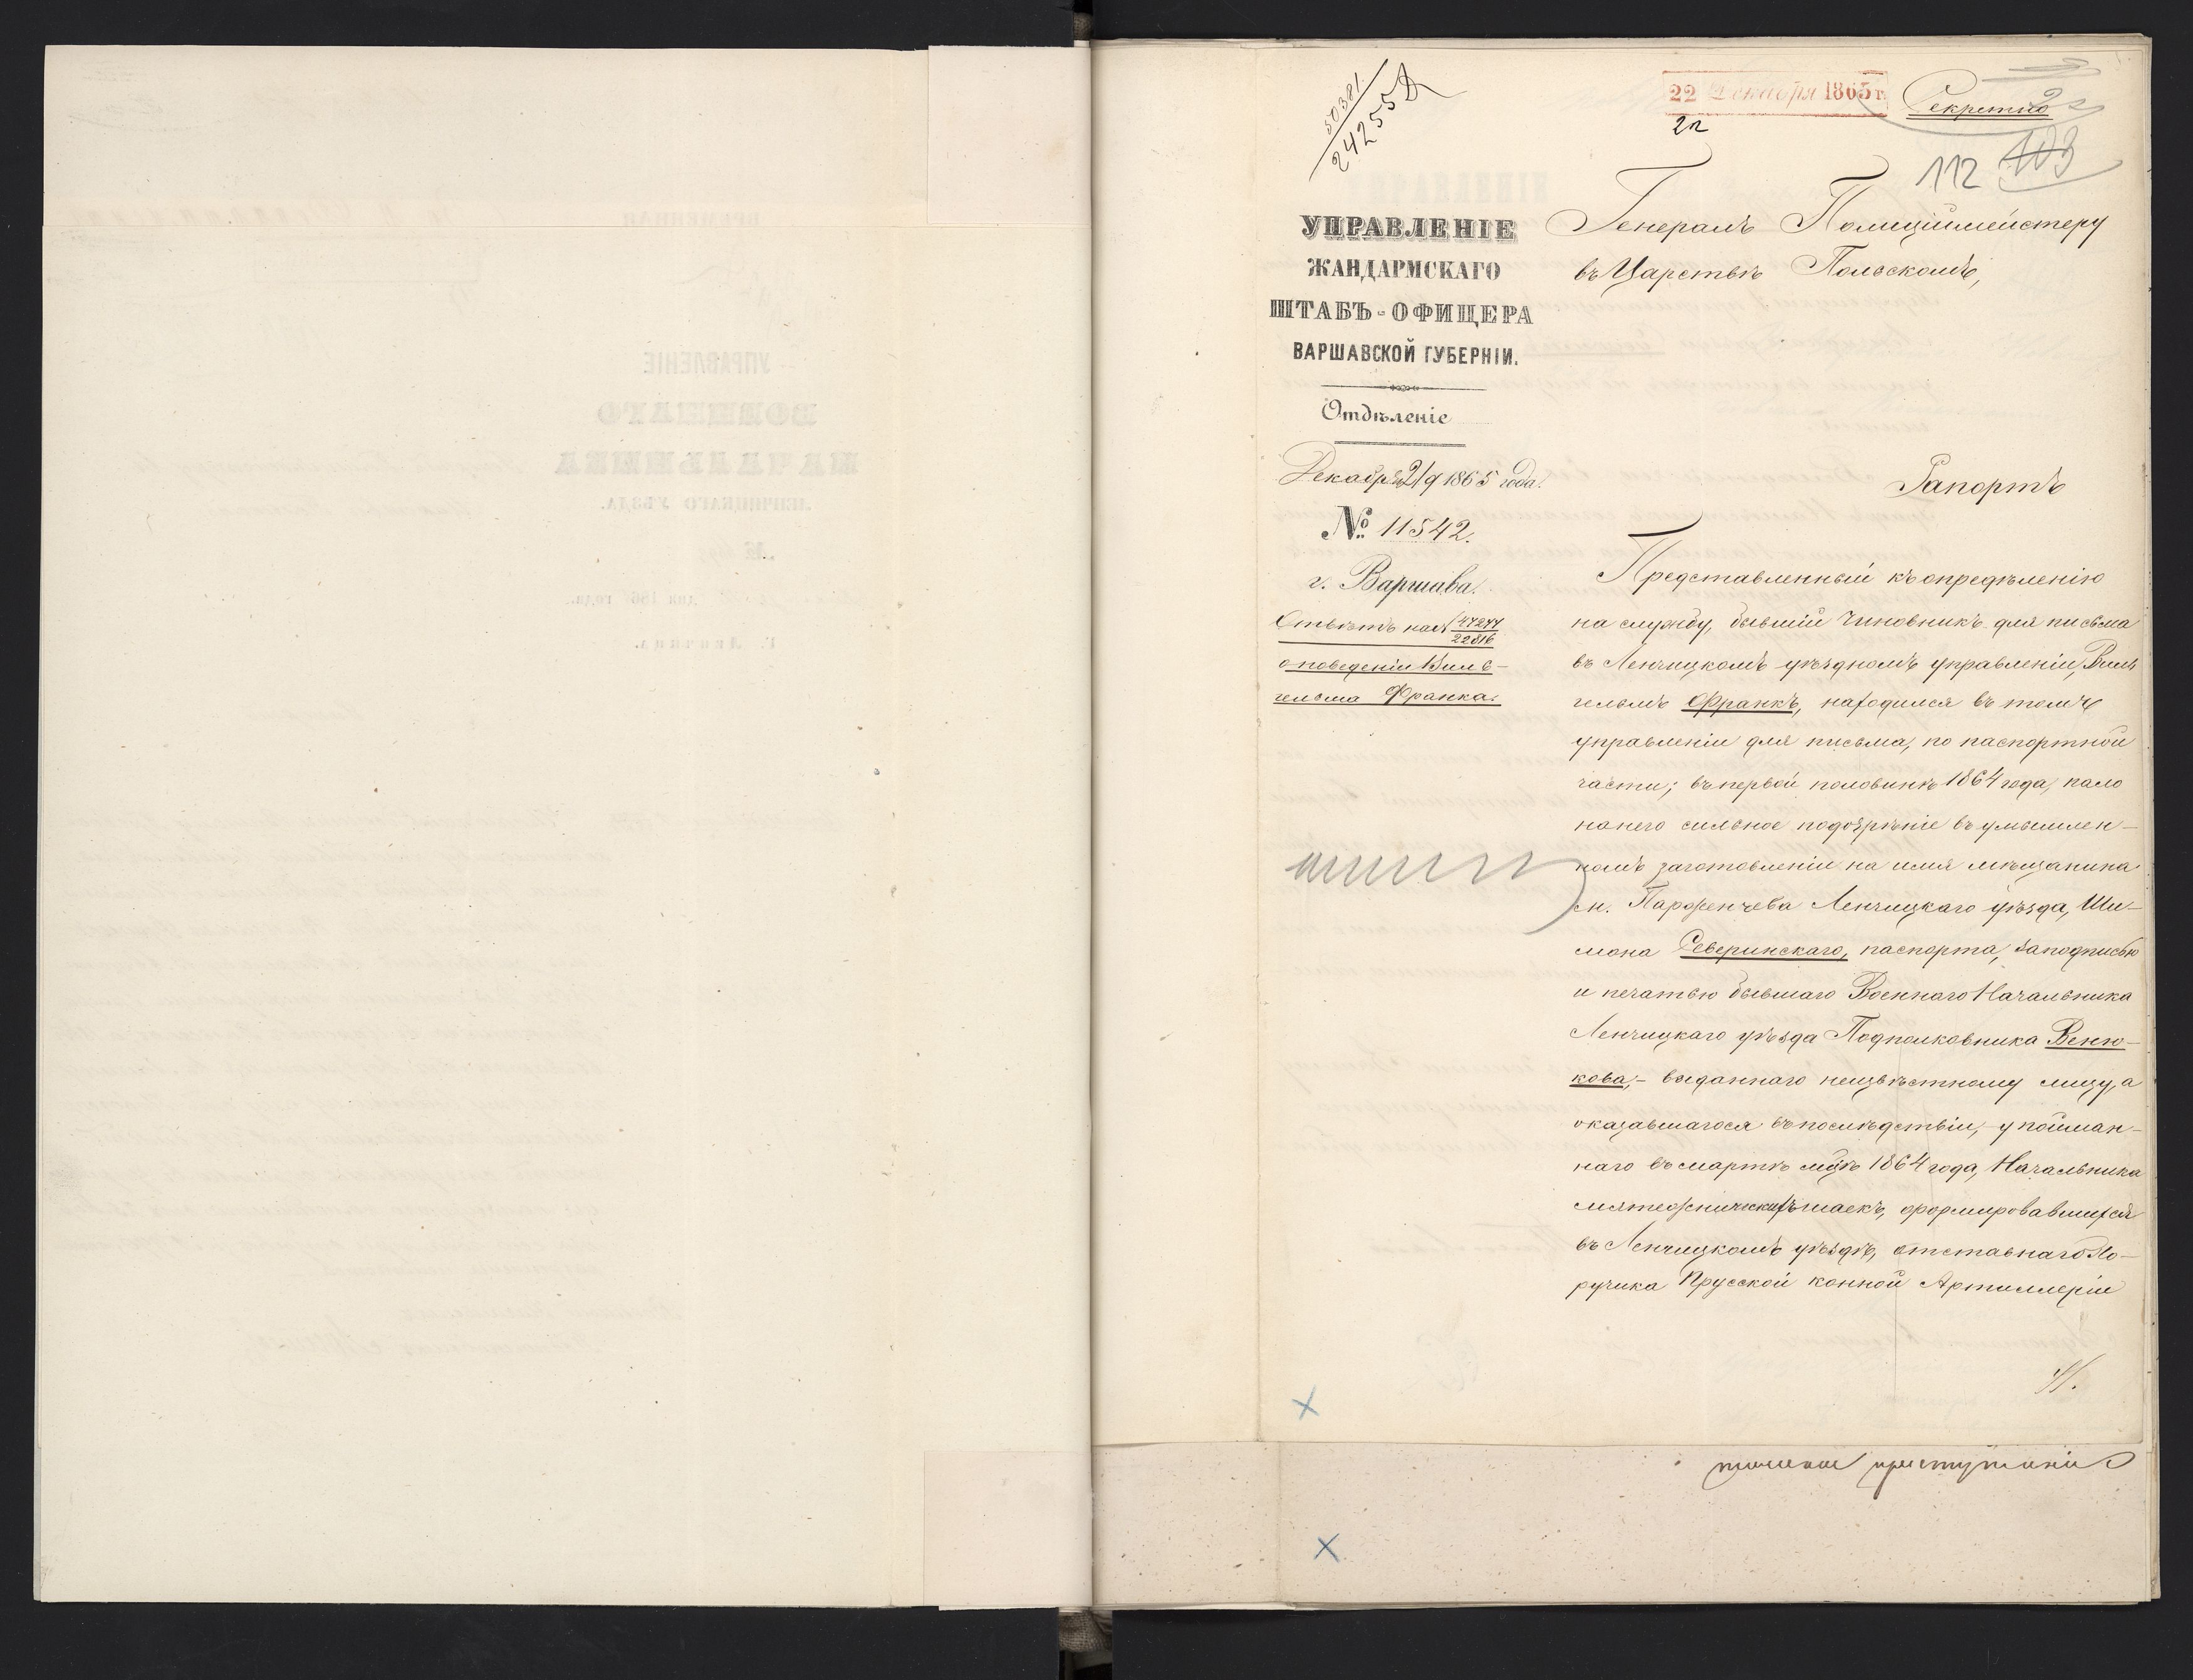 50381
24255
22 Декабря 1865 г.
Секретно
2
112 103
УПРАВЛЕНІЕ
ЖАНДАРМСКАГО
ШТАБЪ-ОФИЦЕРА
ВАРШАВСКОЙ ГУБЕРНІИ.
Отдѣленіе
Декабря 21/9 1865 года.
№ 11542.
г. Варшава.
Отвѣтъ на № 47277/22816
о поведеніи Виль-
гельма Франка.
Генералъ Полиціймейстеру
въ Царствѣ Польскомъ,
Рапортъ
Представленный къ опредѣленію
на службу, бывшій Чиновникъ для письма
въ Ленчицкомъ уѣздномъ управленіи, Виль
гельмъ Франкъ, находился въ томъ
управленіи для письма, по паспортной
части; въ первой половинѣ 1864 года, пало
на него сильное подозрѣніе въ умышлен-
номъ заготовленіи на имя мѣщанина
м. Парженчева Ленчицкаго уѣзда, Ши-
мона Северинскаго, паспорта, за подписью
и печатью бывшаго Военнаго Начальника
Ленчицкаго уѣзда Подполковника Веню-
кова,- выданнаго неизвѣстному лицу, а
оказавшагося въ послѣдствіи, у пойман-
наго въ мартѣ мцѣ 1864 года, Начальника
мятежническихъ шаекъ, формировавшихся
въ Ленчицкомъ уѣздѣ, отставнаго По-
ручика Прусской конной Артиллеріи